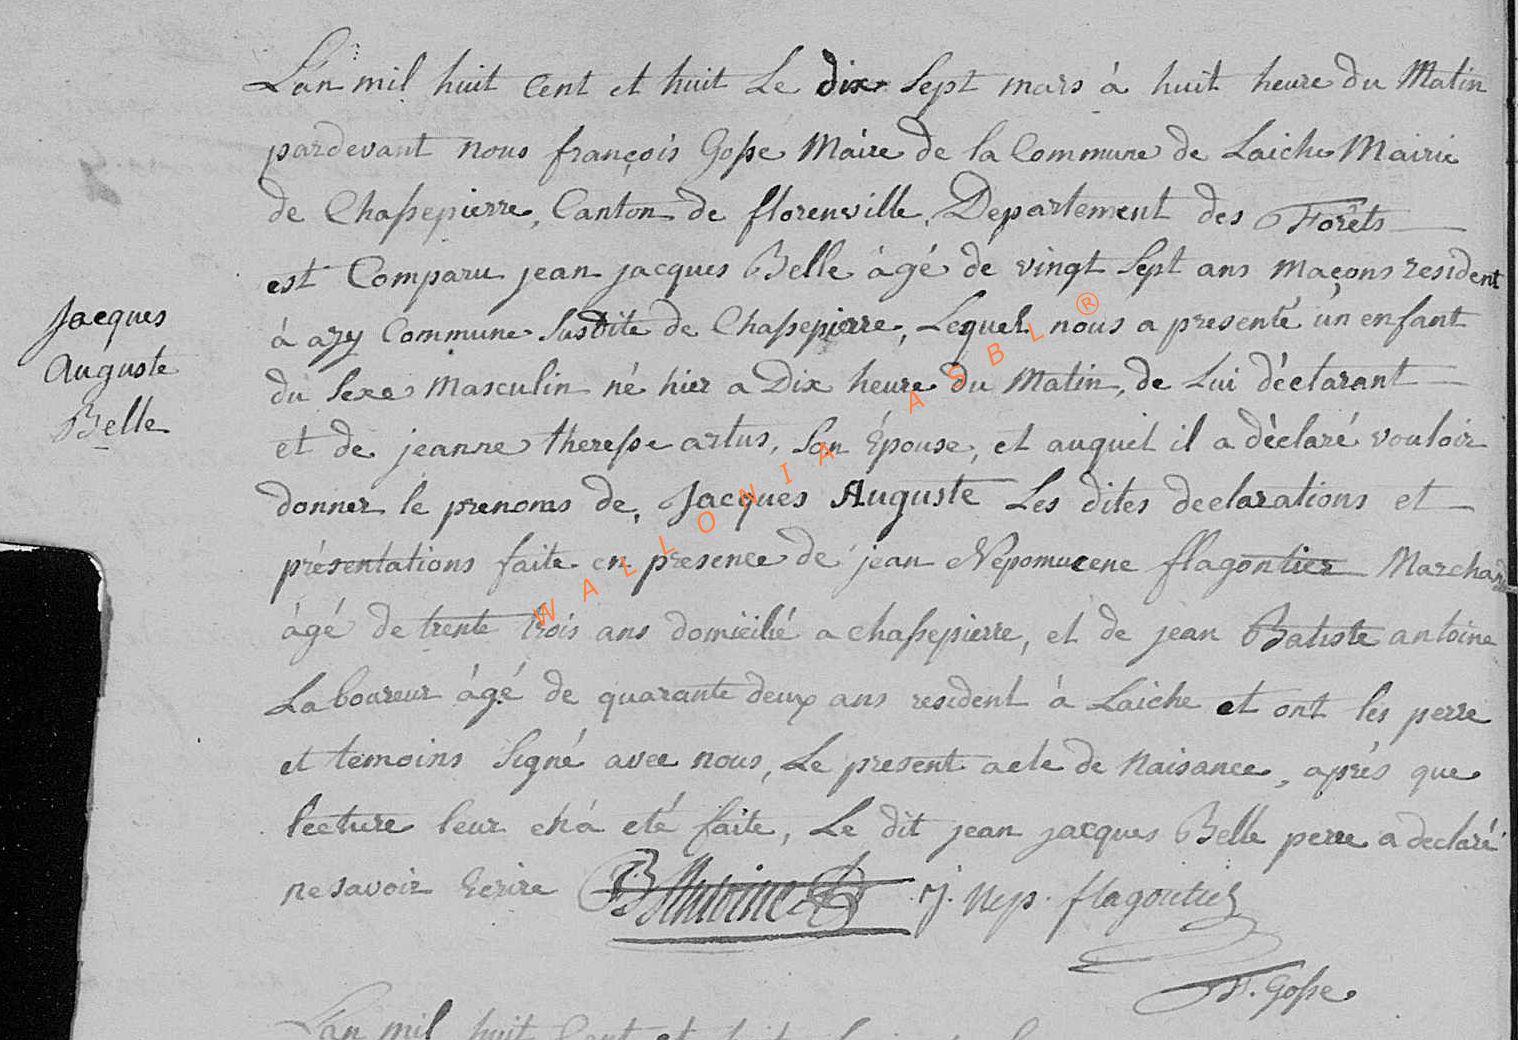 L'an mil huit Cent et huit Le dix Sept mars à huit heure du Matin
pardevant nous françois Gosse Maire de la Commune de Laiche Mairie
de Chassepierre, Canton de florenville, Departement des Forêts
est Comparu jean jacques Belle âgé de vingt Sept ans maçons resident
à azy Commune Susdite de Chassepierre, Lequel nous a presenté un enfant
du Sexe Masculin né hier a Dix heure du Matin, de Lui déclarant
et de jeanne theresse artus, Son Épouse, et auquel il a déclaré vouloir
donner le prenoms de, Jacques Auguste Les dites declarations et
présentations faite en presence de jean Nepomucene flagontier Marchand
âgé de trente trois ans domicilié a chassepierre, et de jean Batiste antoine
Laboureur âgé de quarante deux ans resident à Laiche et ont les perre
et temoins Signé avec nous, Le present acte de Naisance, aprés que
lecture leur en à eté faite, Le dit jean jacques Belle perre a declaré
ne savoir Ecrire JB Antoine J. Nep. flagontier
F. Gosse
Jacques
Auguste
Belle
L'an mil huit Cent et huit
WALLONIA ASBL ®